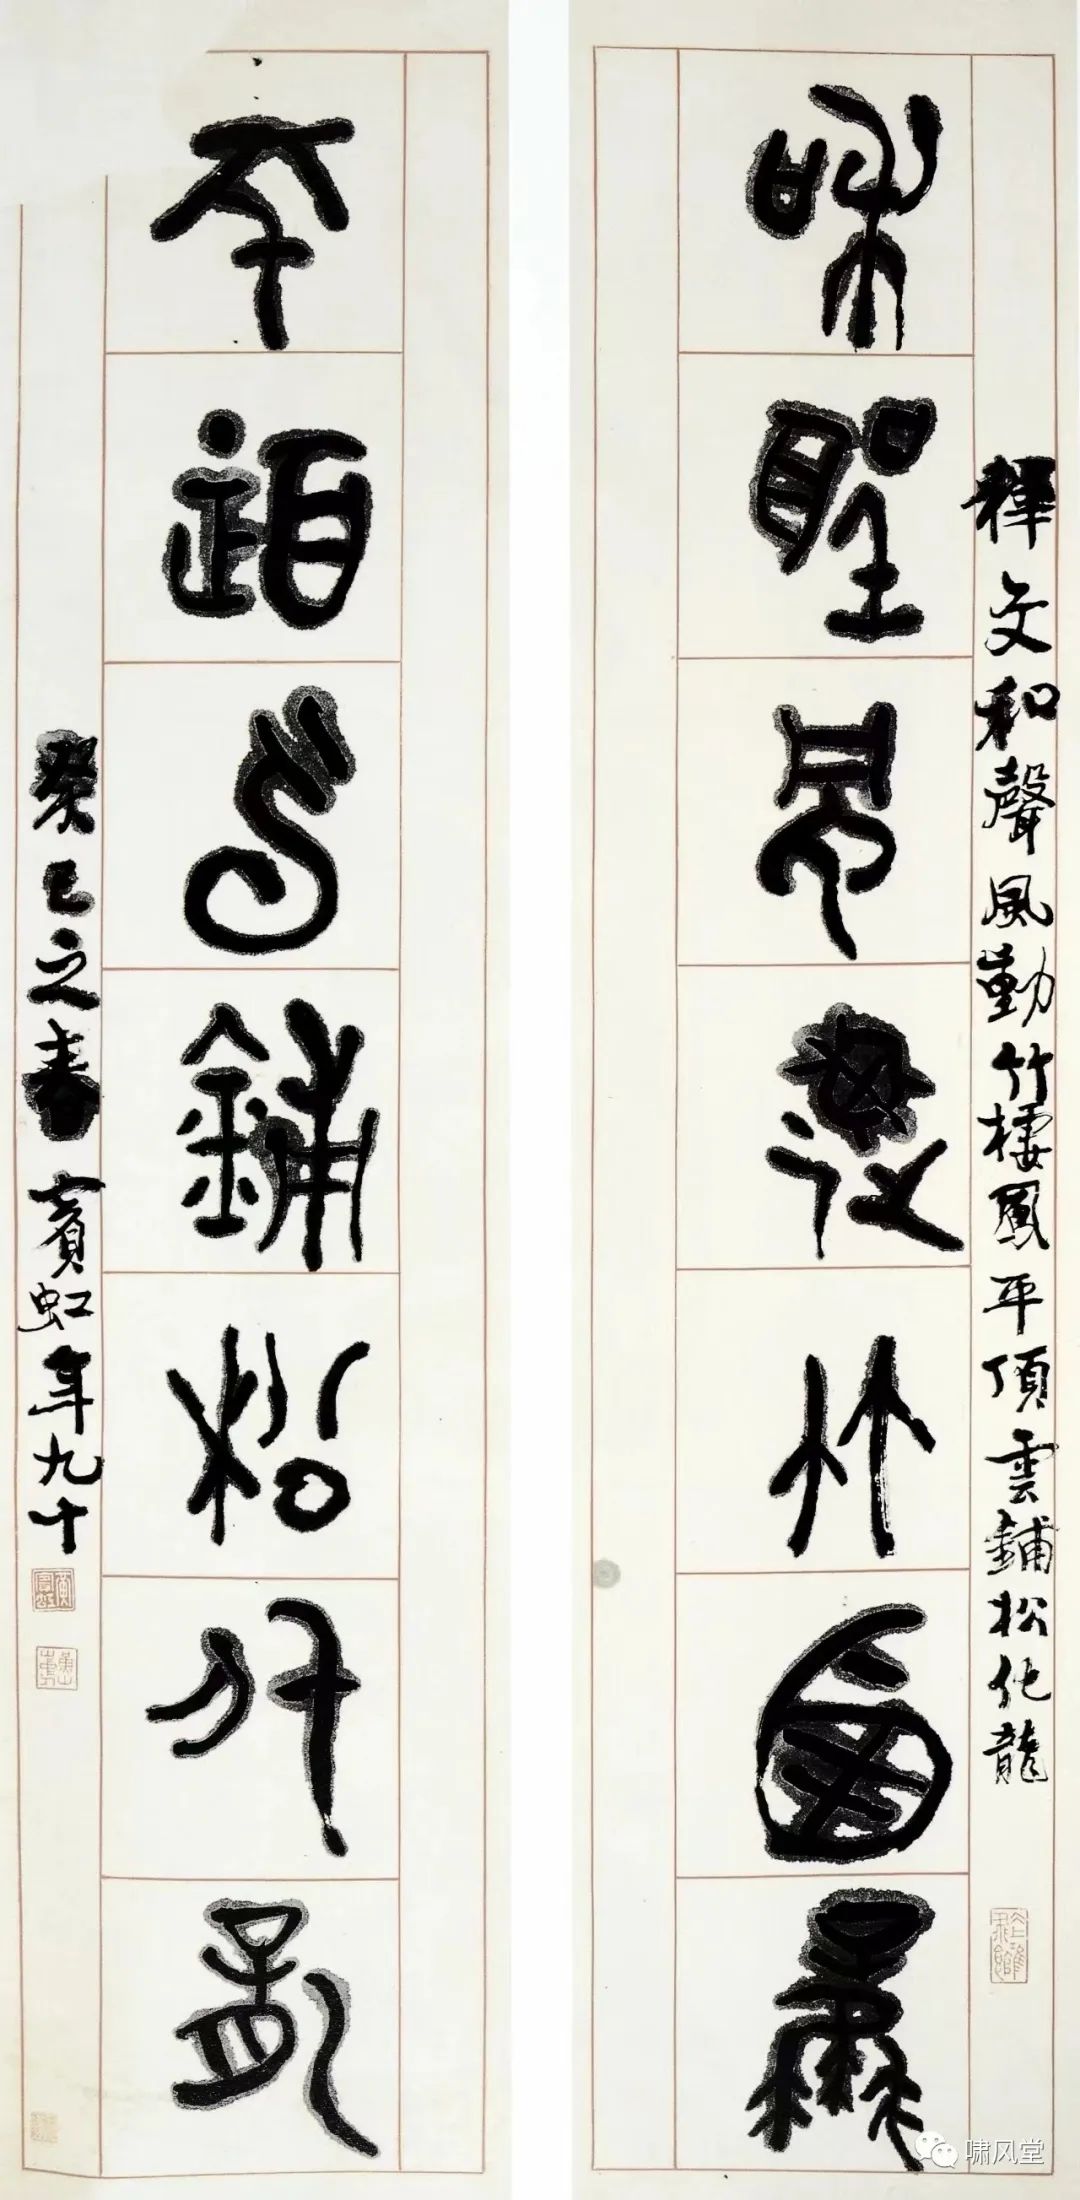 和聲風動竹棲鳳
釋文和聲風動竹棲鳳平頂雲鋪松化龍
平頂雲鋪松化龍
癸巳之春賓虹年九十
啸风堂